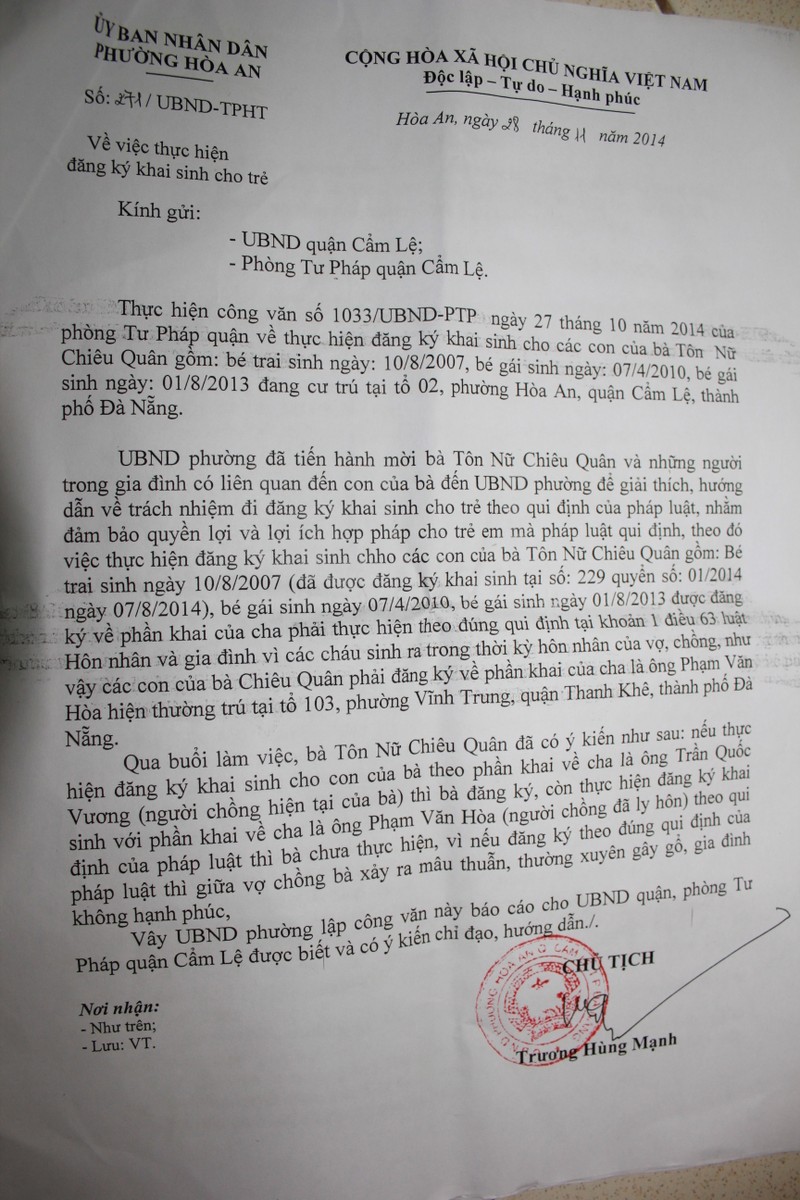 ỦY BAN NHÂN DÂN
PHƯỜNG HÒA AN
CỘNG HÒA XÃ HỘI CHỦ NGHĨA VIỆT NAM
Độc lập – Tự do – Hạnh phúc
Số: 271 / UBND-TPHT
Hòa An, ngày 28 tháng 11 năm 2014
Về việc thực hiện
đăng ký khai sinh cho trẻ
Kính gửi:
- UBND quận Cẩm Lệ;
- Phòng Tư Pháp quận Cẩm Lệ.
Thực hiện công văn số 1033/UBND-PTP ngày 27 tháng 10 năm 2014 của
phòng Tư Pháp quận về thực hiện đăng ký khai sinh cho các con của bà Tôn Nữ
Chiêu Quân gồm: bé trai sinh ngày: 10/8/2007, bé gái sinh ngày: 07/4/2010, bé gái
sinh ngày: 01/8/2013 đang cư trú tại tổ 02, phường Hòa An, quận Cẩm Lệ, thành
phố Đà Nẵng.
UBND phường đã tiến hành mời bà Tôn Nữ Chiêu Quân và những người
trong gia đình có liên quan đến con của bà đến UBND phường để giải thích, hướng
dẫn về trách nhiệm đi đăng ký khai sinh cho trẻ theo qui định của pháp luật, nhằm
đảm bảo quyền lợi và lợi ích hợp pháp cho trẻ em mà pháp luật qui định, theo đó
việc thực hiện đăng ký khai sinh chho các con của bà Tôn Nữ Chiêu Quân gồm: Bé
trai sinh ngày 10/8/2007 (đã được đăng ký khai sinh tại số: 229 quyển số: 01/2014
ngày 07/8/2014), bé gái sinh ngày 07/4/2010, bé gái sinh ngày 01/8/2013 được đăng
ký về phần khai của cha phải thực hiện theo đúng qui định tại khoản 1 điều 63 luật
Hôn nhân và gia đình vì các cháu sinh ra trong thời kỳ hôn nhân của vợ, chồng, như
vậy các con của bà Chiêu Quân phải đăng ký về phần khai của cha là ông Phạm Văn
Hòa hiện thường trú tại tổ 103, phường Vĩnh Trung, quận Thanh Khê, thành phố Đà
Nẵng.
Qua buổi làm việc, bà Tôn Nữ Chiêu Quân đã có ý kiến như sau: nếu thực
hiện đăng ký khai sinh cho con của bà theo phần khai về cha là ông Trần Quốc
Vương (người chồng hiện tại của bà) thì bà đăng ký, còn thực hiện đăng ký khai
sinh với phần khai về cha là ông Phạm Văn Hòa (người chồng đã ly hôn) theo qui
định của pháp luật thì bà chưa thực hiện, vì nếu đăng ký theo đúng qui định của
pháp luật thì giữa vợ chồng bà xảy ra mâu thuẫn, thường xuyên gây gổ, gia đình
không hạnh phúc,
Vây UBND phường lập công văn này báo cáo cho UBND quận, phòng Tư
Pháp quận Cẩm Lệ được biết và có ý kiến chỉ đạo, hướng dẫn./.
CHỦ TỊCH
Nơi nhận:
- Như trên;
- Lưu: VT.
Trương Hùng Mạnh